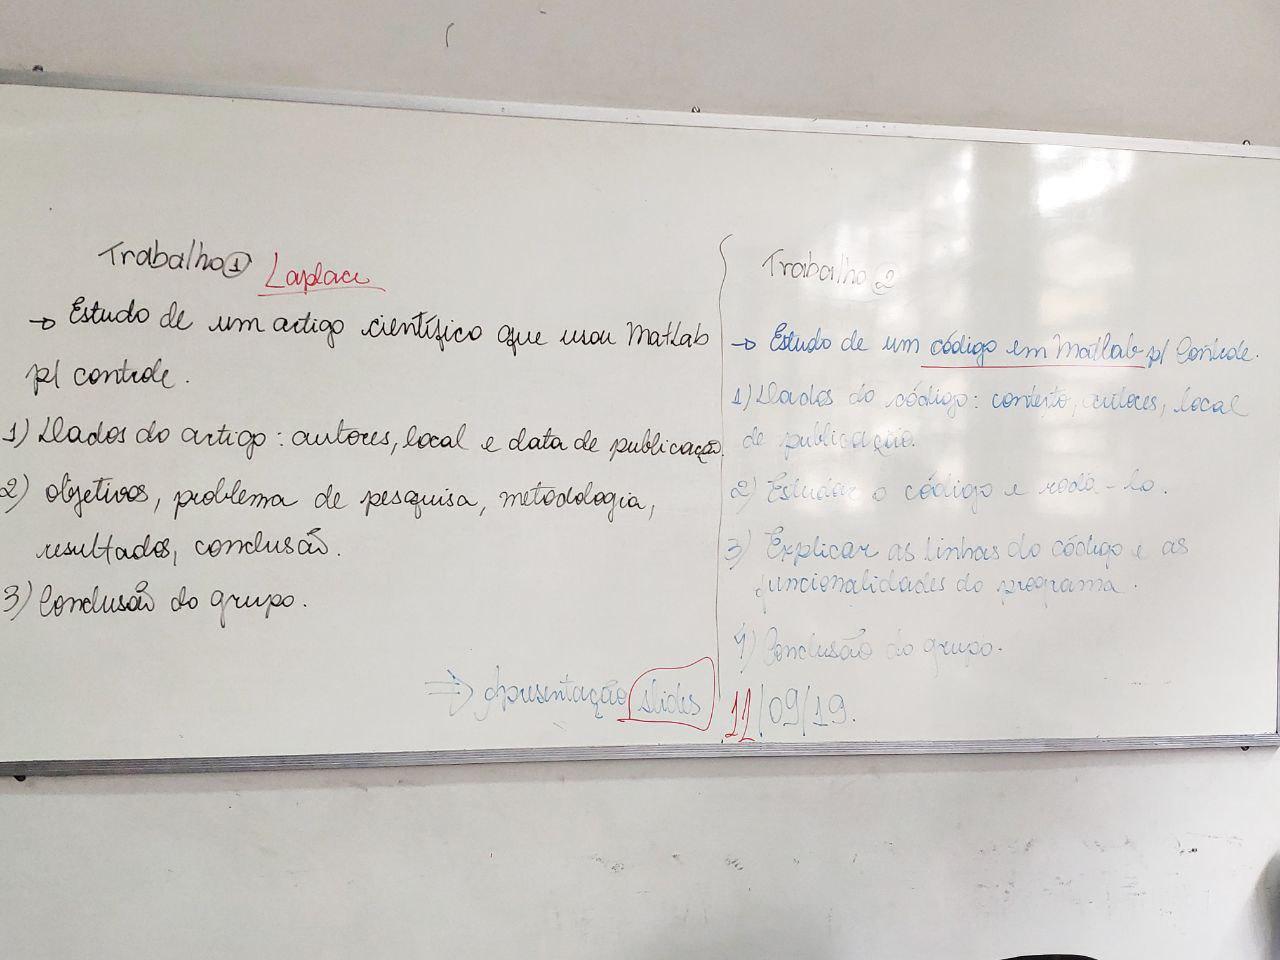 Trabalho 1 Laplace
→ Estudo de um artigo científico que usou Matlab
p/ controle.
1) Dados do artigo: autores, local e data de publicação.
2) objetivos, problema de pesquisa, metodologia,
resultados, conclusão.
3) Conclusão do grupo.
⇒ Apresentação slides
Trabalho 2
→ Estudo de um código em Matlab p/ Controle.
1) Dados do código: contexto, autores, local
de publicação.
2) Estudar o código e rodá-lo.
3) Explicar as linhas do código e as
funcionalidades do programa.
4) Conclusão do grupo.
11/09/19.